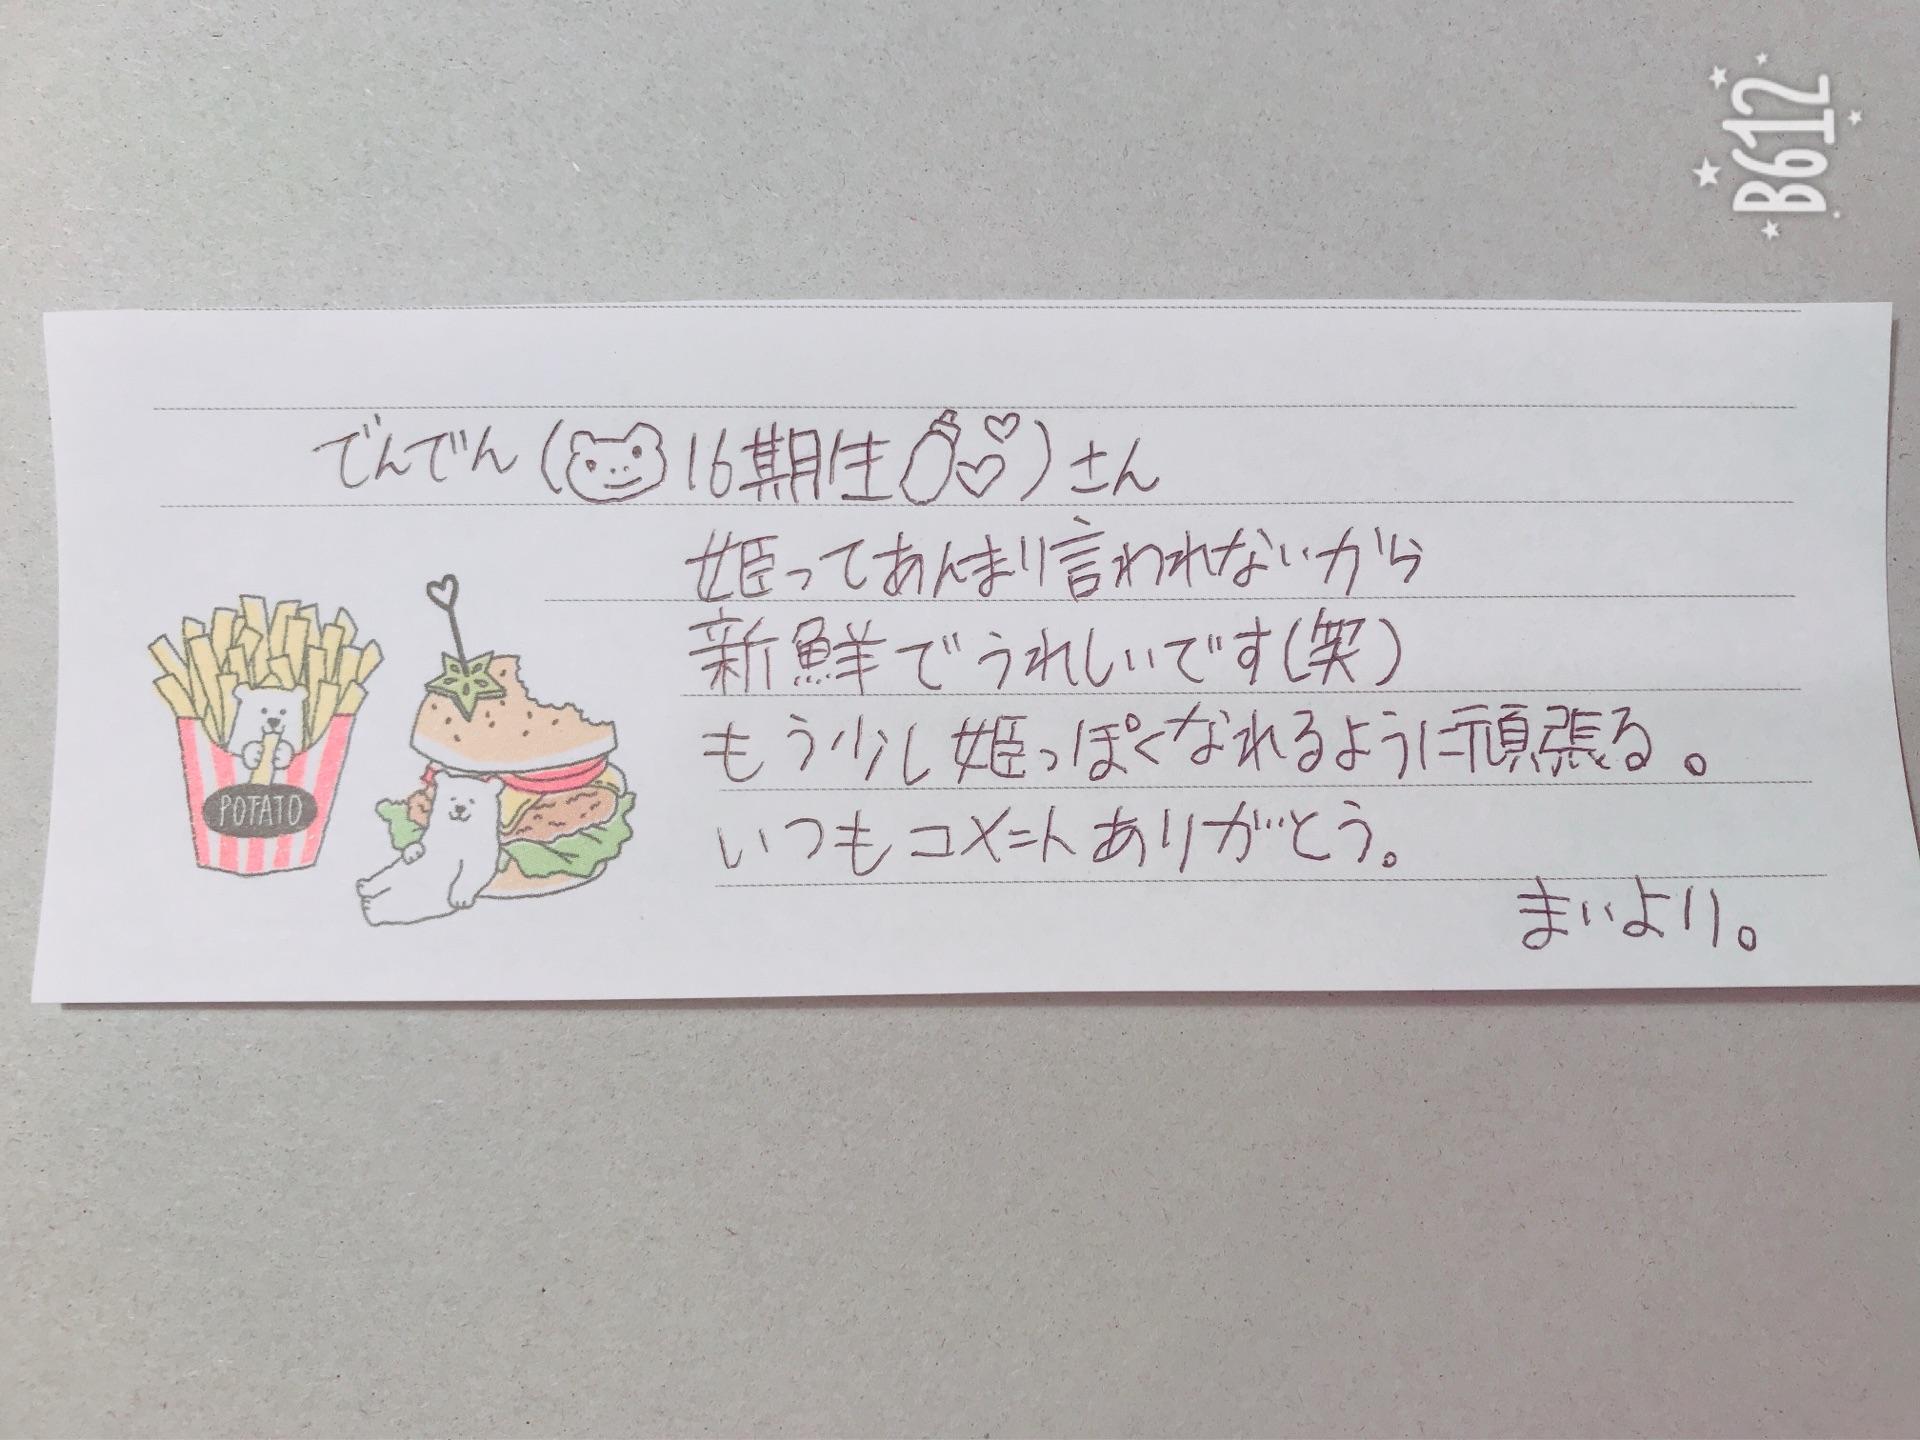 B612
でんでん(16期生)さん
姫ってあんまり言われないから
新鮮でうれしいです(笑)
もう少し姫っぽくなれるように頑張る。
いつもコメントありがとう。
まいより。
POTATO